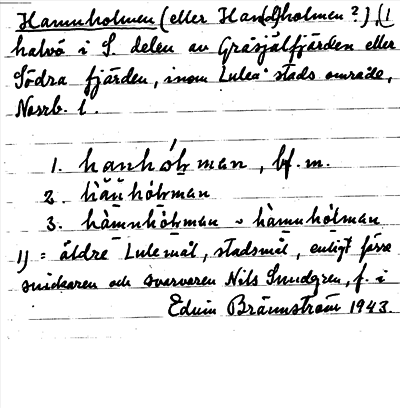 Hamnholmen (eller Han(d)holmen?) (1
halvö i S. delen av Gråsjälfjärden eller
Södra fjärden, inom Luleå stads område,
Norrb. l.
1. hanhólman, bf. m.
2. hän̆hólman
3. hàmnhólman ~ hàmnhólman
1) = äldre Lulemål, stadsmål, enligt förre
snickaren och svarvaren Nils Sundgren, f. i
Edvin Brännström 1943.